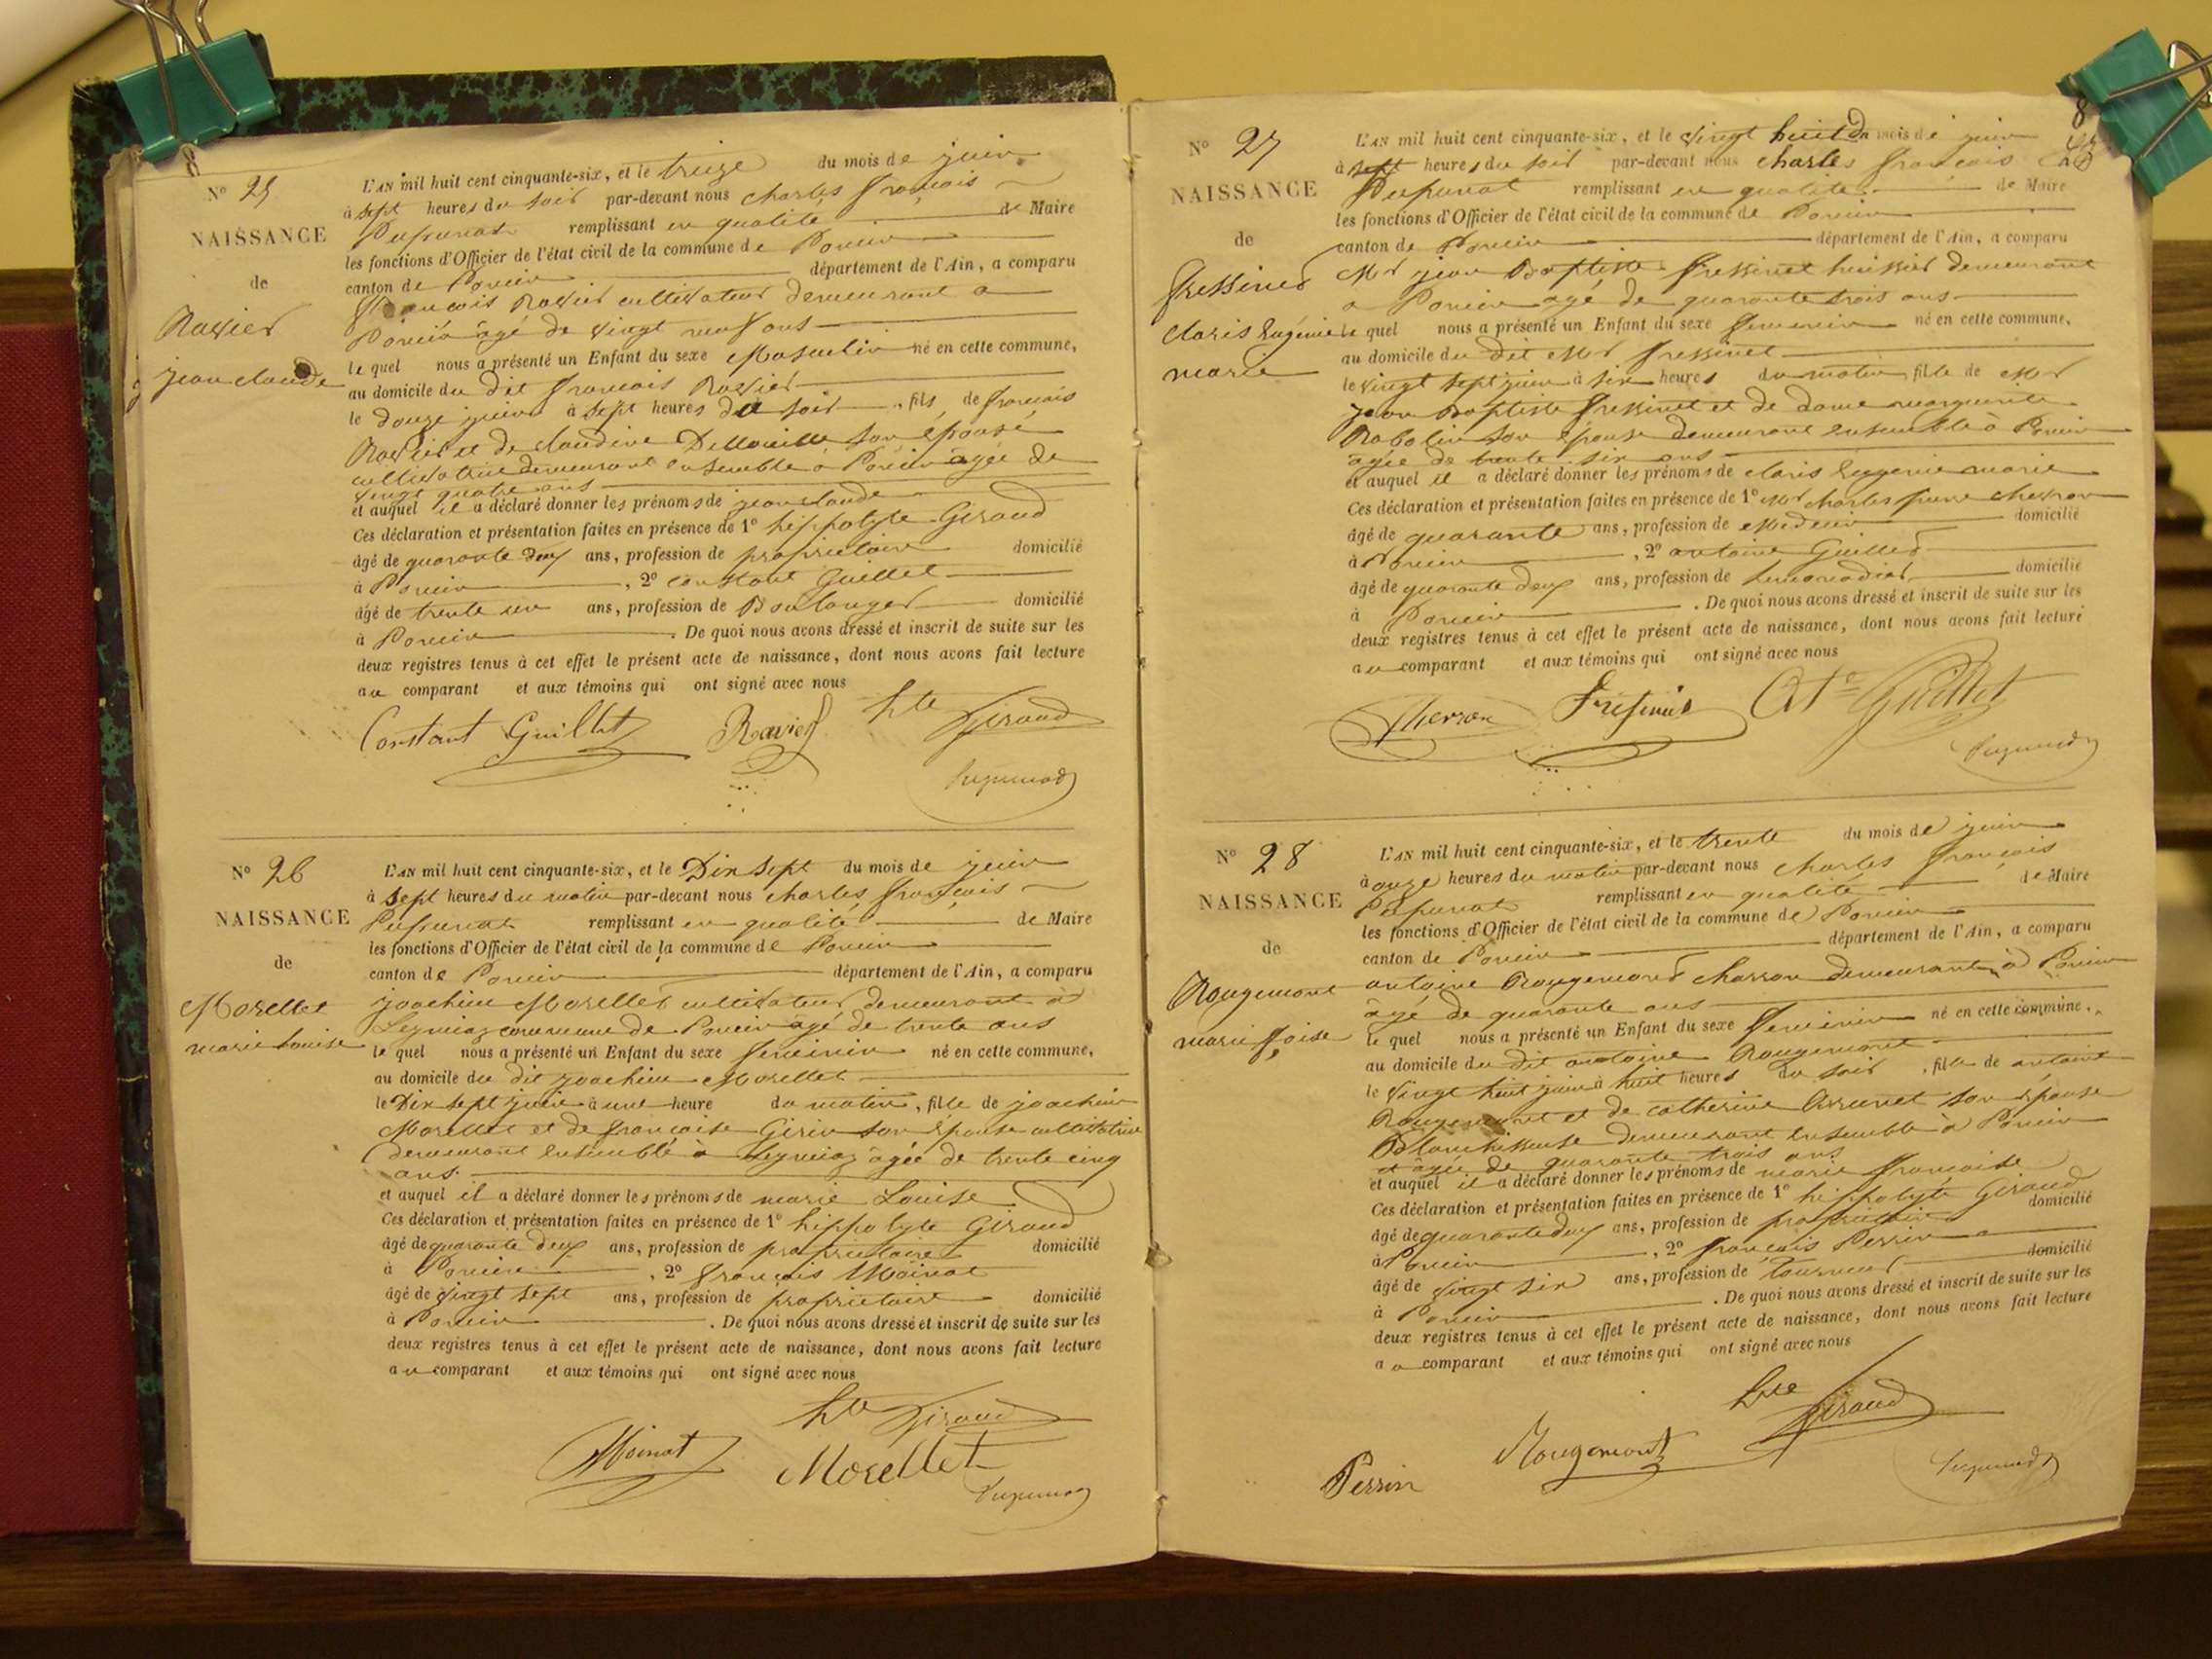 8
N° 25
NAISSANCE
de
Ravier
jean claude
L'AN mil huit cent cinquante-six, et le treize du mois de juin
à sept heures du soir par-devant nous charles françois
remplissant en qualité de Maire
les fonctions d'Officier de l'état civil de la commune de Poncin
canton de Poncin département de l'Ain, a comparu
françois Ravier cultivateur demeurant a
Poncin âgé de vingt neuf ans
le quel nous a présenté un Enfant du sexe Masculin né en cette commune,
au domicile du dit françois Ravier
le douze juin à sept heures du soir, fils de françois
Ravier et de claudine son épouse
cultivatrice demeurant ensemble à Poncin agée de
vingt quatre ans
et auquel il a déclaré donner les prénoms de jean claude
Ces déclaration et présentation faites en présence de 1° hippolyte Giraud
âgé de quarante deux ans, profession de propriétaire domicilié
à Poncin, 2° constant Guillet
âgé de trente un ans, profession de Boulanger domicilié
à Poncin. De quoi nous avons dressé et inscrit de suite sur les
deux registres tenus à cet effet le présent acte de naissance, dont nous avons fait lecture
au comparant et aux témoins qui ont signé avec nous
Constant Guillet Ravier hte Giraud
N° 26
NAISSANCE
de
Morellet
marie Louise
L'AN mil huit cent cinquante-six, et le Dix sept du mois de juin
à sept heures du matin par-devant nous charles françois
remplissant en qualité de Maire
les fonctions d'Officier de l'état civil de la commune de Poncin
canton de Poncin département de l'Ain, a comparu
joachim Morellet cultivateur demeurant à
Leymiaz commune de Poncin agé de trente ans
le quel nous a présenté un Enfant du sexe feminin né en cette commune,
au domicile du dit joachim Morellet
le Dix sept juin à une heure du matin, fille de joachim
Morellet et de françoise Girin son épouse cultivatrice
demeurant ensemble à Leymiaz âgée de trente cinq
ans
et auquel il a déclaré donner les prénoms de marie Louise
Ces déclaration et présentation faites en présence de 1° hippolyte Giraud
âgé de quarante deux ans, profession de propriétaire domicilié
à Poncin, 2° françois Moinat
âgé de vingt sept ans, profession de propriétaire domicilié
à Poncin. De quoi nous avons dressé et inscrit de suite sur les
deux registres tenus à cet effet le présent acte de naissance, dont nous avons fait lecture
au comparant et aux témoins qui ont signé avec nous
hte Giraud
Moinat Morellet
8
N° 27
NAISSANCE
de
fressinet
claris Eugénie
marie
L'AN mil huit cent cinquante-six, et le vingt huit du mois de juin
à sept heures du soir par-devant nous charles françois
remplissant en qualité de Maire
les fonctions d'Officier de l'état civil de la commune de Poncin
canton de Poncin département de l'Ain, a comparu
Mr jean Baptiste fressinet huissier demeurant
a Poncin agé de quarante trois ans
le quel nous a présenté un Enfant du sexe feminin né en cette commune,
au domicile du dit Mr fressinet
le vingt sept juin à six heures du matin fille de Mr
jean Baptiste fressinet et de dame marguerite
Rabolin son épouse demeurant ensemble à Poncin
agée de trente six ans
et auquel il a déclaré donner les prénoms de claris Eugenie marie
Ces déclaration et présentation faites en présence de 1° Mr charles pierre
âgé de quarante ans, profession de Medecin domicilié
à Poncin, 2° antoine Guillet
âgé de quarante deux ans, profession de limonadier domicilié
à Poncin. De quoi nous avons dressé et inscrit de suite sur les
deux registres tenus à cet effet le présent acte de naissance, dont nous avons fait lecture
au comparant et aux témoins qui ont signé avec nous
Guillet
N° 28
NAISSANCE
de
Rougemont
marie fçoise
L'AN mil huit cent cinquante-six, et le trente du mois de juin
à onze heures du matin par-devant nous charles françois
remplissant en qualité de Maire
les fonctions d'Officier de l'état civil de la commune de Poncin
canton de Poncin département de l'Ain, a comparu
antoine Rougemont charron demeurant à Poncin
âgé de quarante ans
le quel nous a présenté un Enfant du sexe feminin né en cette commune,
au domicile du dit antoine Rougemont
le vingt huit juin à huit heures du soir, fille de antoine
Rougemont et de catherine son épouse
Blanchisseuse demeurant ensemble à Poncin
et âgée de quarante trois ans
et auquel il a déclaré donner les prénoms de marie françoise
Ces déclaration et présentation faites en présence de 1° hippolyte Giraud
âgé de quarante deux ans, profession de propriétaire domicilié
à Poncin, 2° françois Perrin
âgé de vingt six ans, profession de tourneur domicilié
à Poncin. De quoi nous avons dressé et inscrit de suite sur les
deux registres tenus à cet effet le présent acte de naissance, dont nous avons fait lecture
au comparant et aux témoins qui ont signé avec nous
hte Giraud
Perrin Rougemont